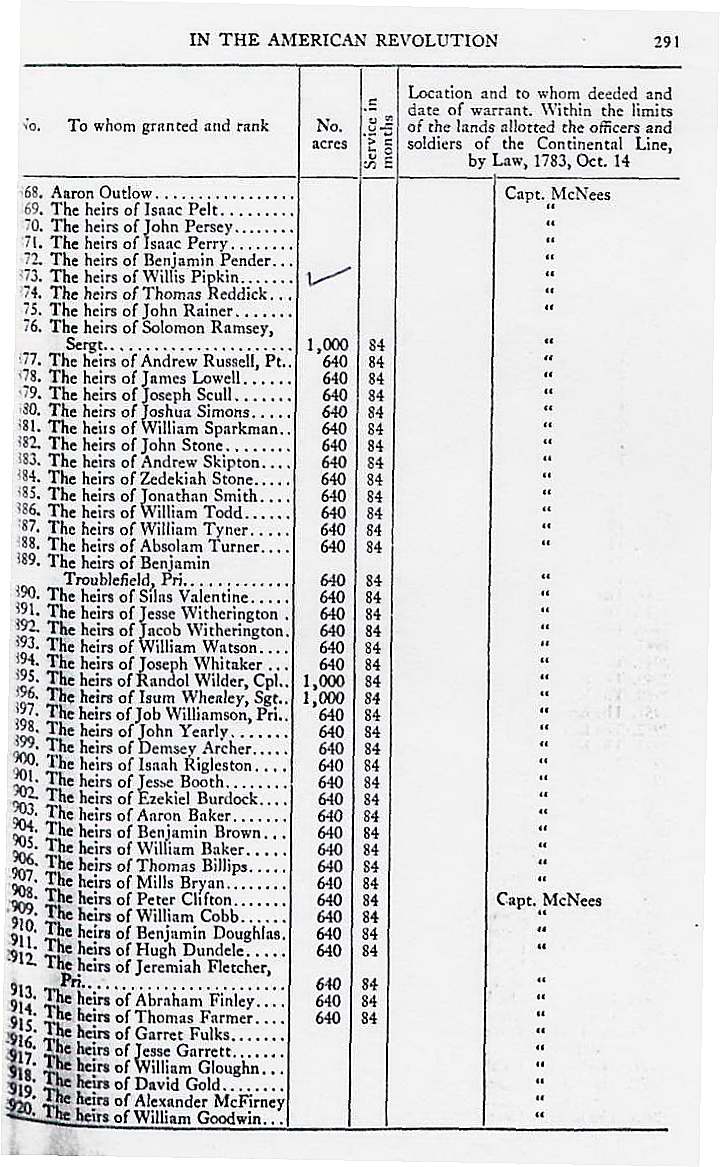 IN THE AMERICAN REVOLUTION 291
No. To whom granted and rank No. acres Service in months Location and to whom deeded and date of warrant. Within the limits of the lands allotted the officers and soldiers of the Continental Line, by Law, 1783, Oct. 14
68. Aaron Outlow................ Capt. McNees
69. The heirs of Isaac Pelt......... “
70. The heirs of John Persey........ “
71. The heirs of Isaac Perry........ “
72. The heirs of Benjamin Pender... “
873. The heirs of Willis Pipkin....... “
874. The heirs of Thomas Reddick... “
75. The heirs of John Rainer....... “
76. The heirs of Solomon Ramsey,
Sergt...................... 1,000 84 “
877. The heirs of Andrew Russell, Pt.. 640 84 “
878. The heirs of James Lowell...... 640 84 “
879. The heirs of Joseph Scull....... 640 84 “
880. The heirs of Joshua Simons..... 640 84 “
881. The heirs of William Sparkman.. 640 84 “
882. The heirs of John Stone........ 640 84 “
883. The heirs of Andrew Skipton.... 640 84 “
884. The heirs of Zedekiah Stone..... 640 84 “
885. The heirs of Jonathan Smith.... 640 84 “
886. The heirs of William Todd...... 640 84 “
887. The heirs of William Tyner..... 640 84 “
888. The heirs of Absolam Turner.... 640 84 “
889. The heirs of Benjamin
Troublefield, Pri............. 640 84 “
890. The heirs of Silas Valentine..... 640 84 “
891. The heirs of Jesse Witherington . 640 84 “
892. The heirs of Jacob Witherington. 640 84 “
893. The heirs of William Watson.... 640 84 “
894. The heirs of Joseph Whitaker ... 640 84 “
895. The heirs of Randol Wilder, Cpl.. 1,000 84 “
896. The heirs of Isum Whealey, Sgt.. 1,000 84 “
897. The heirs of Job Williamson, Pri.. 640 84 “
898. The heirs of John Yearly....... 640 84 “
899. The heirs of Demsey Archer..... 640 84 “
900. The heirs of Isaah Rigleston.... 640 84 “
901. The heirs of Jesse Booth........ 640 84 “
902. The heirs of Ezekiel Burdock.... 640 84 “
903. The heirs of Aaron Baker....... 640 84 “
904. The heirs of Benjamin Brown... 640 84 “
905. The heirs of William Baker..... 640 84 “
906. The heirs of Thomas Billips..... 640 84 “
907. The heirs of Mills Bryan........ 640 84 “
908. The heirs of Peter Clifton....... 640 84 Capt. McNees
909. The heirs of William Cobb...... 640 84 “
910. The heirs of Benjamin Doughlas. 640 84 “
911. The heirs of Hugh Dundele..... 640 84 “
912. The heirs of Jeremiah Fletcher,
Pri........................ 640 84 “
913. The heirs of Abraham Finley.... 640 84 “
914. The heirs of Thomas Farmer.... 640 84 “
915. The heirs of Garret Fulks....... “
916. The heirs of Jesse Garrett....... “
917. The heirs of William Gloughn... “
918. The heirs of David Gold........ “
919. The heirs of Alexander McFirney “
920. The heirs of William Goodwin... “